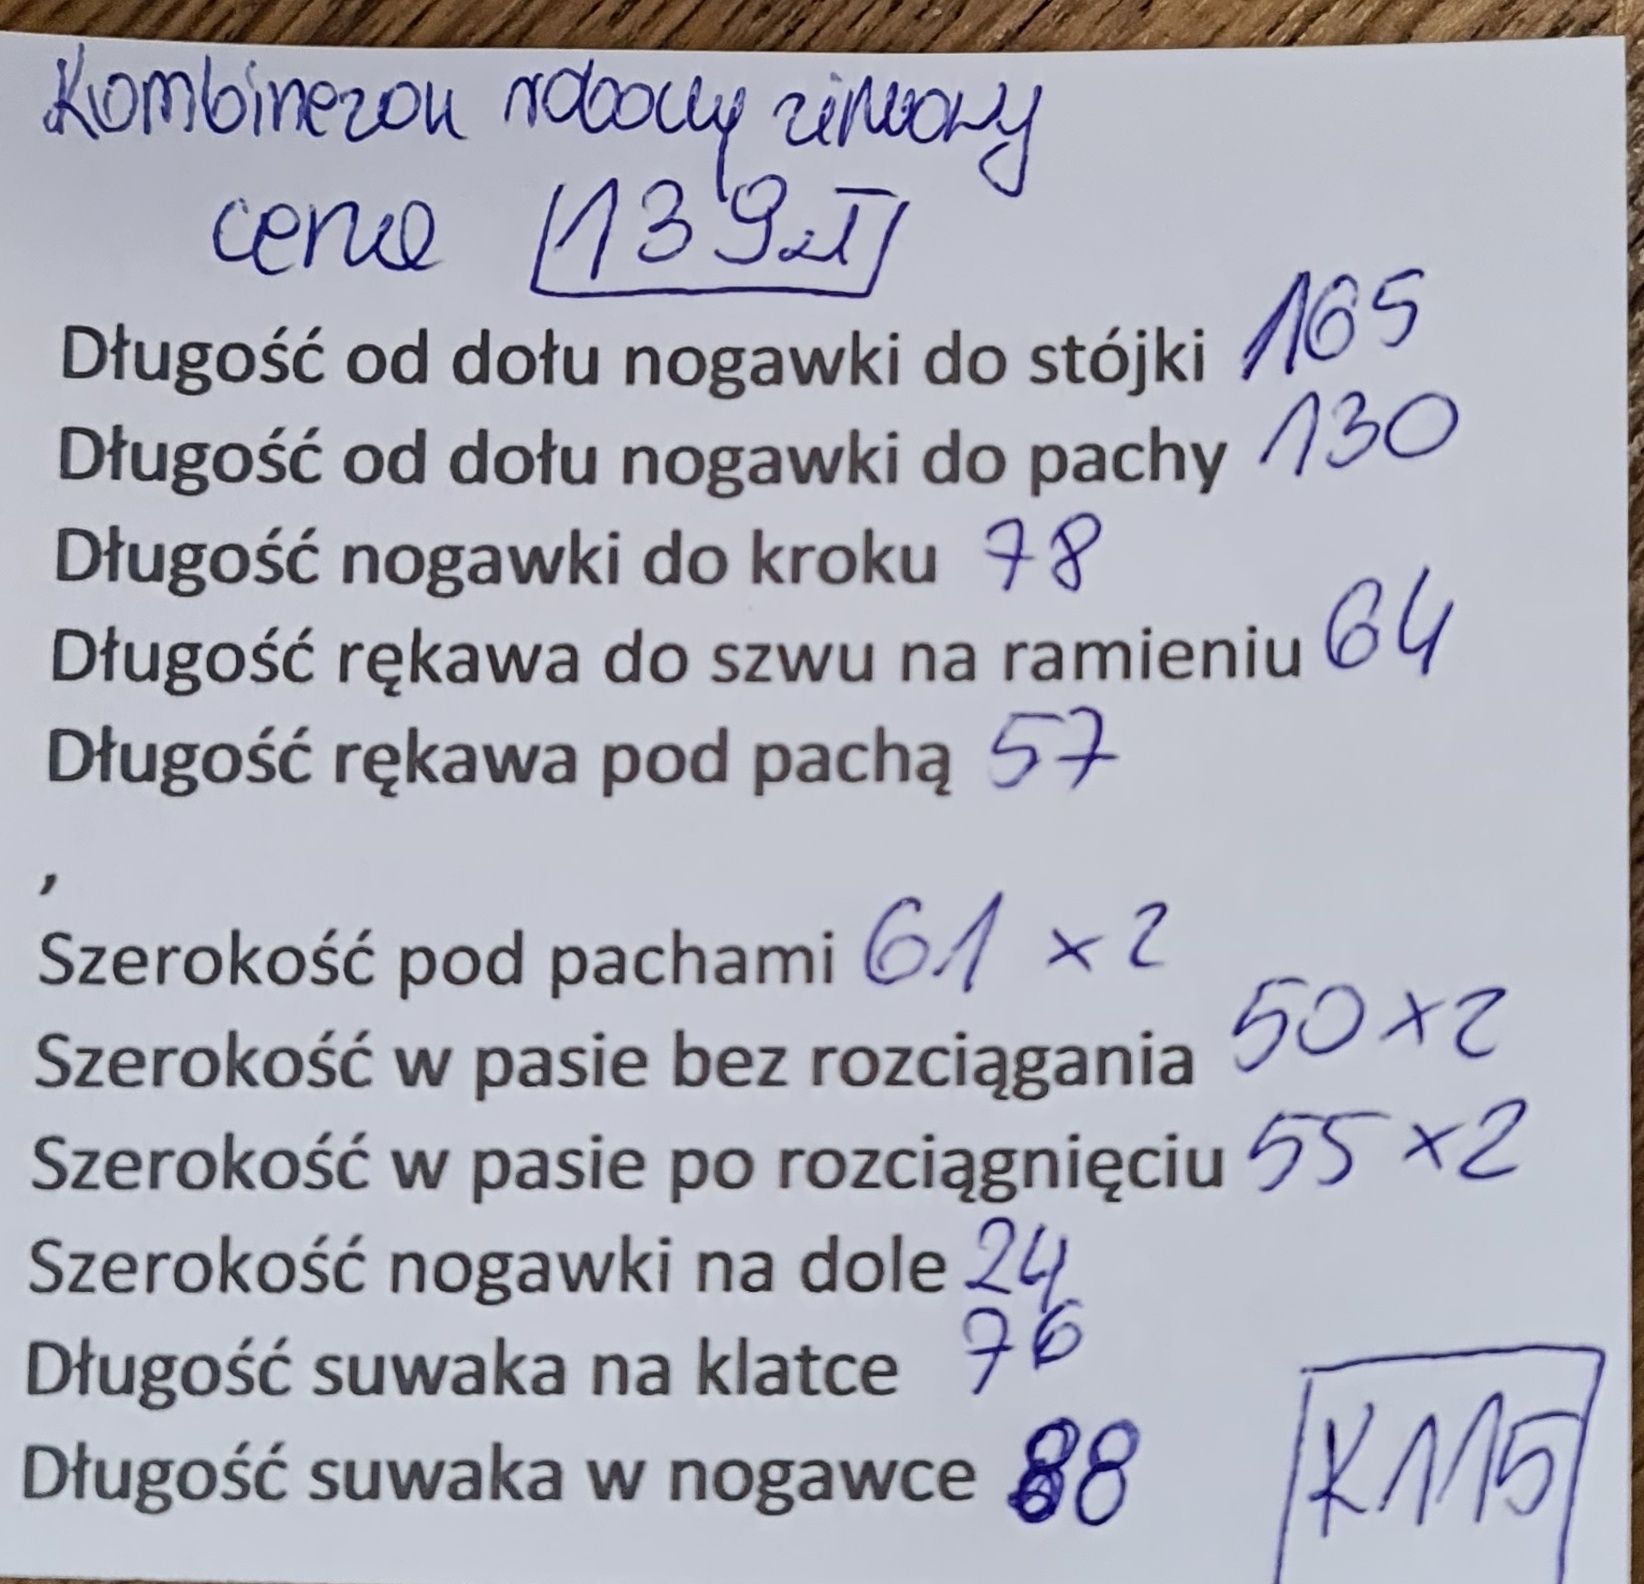 Kombinezon roboczy zimowy
cena 139zł
Długość od dołu nogawki do stójki 165
Długość od dołu nogawki do pachy 130
Długość nogawki do kroku 78
Długość rękawa do szwu na ramieniu 64
Długość rękawa pod pachą 57
,
Szerokość pod pachami 61 x 2
Szerokość w pasie bez rozciągania 50 x 2
Szerokość w pasie po rozciągnięciu 55 x 2
Szerokość nogawki na dole 24
Długość suwaka na klatce 76
Długość suwaka w nogawce 88
K115